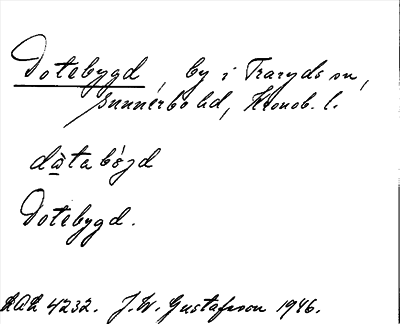 Dotebygd, by i Traryds sn,
Sunnerbo hd, Kronob. l.
dàtabýgd
Dotebygd.
4232. J. W. Gustafsson 1946.